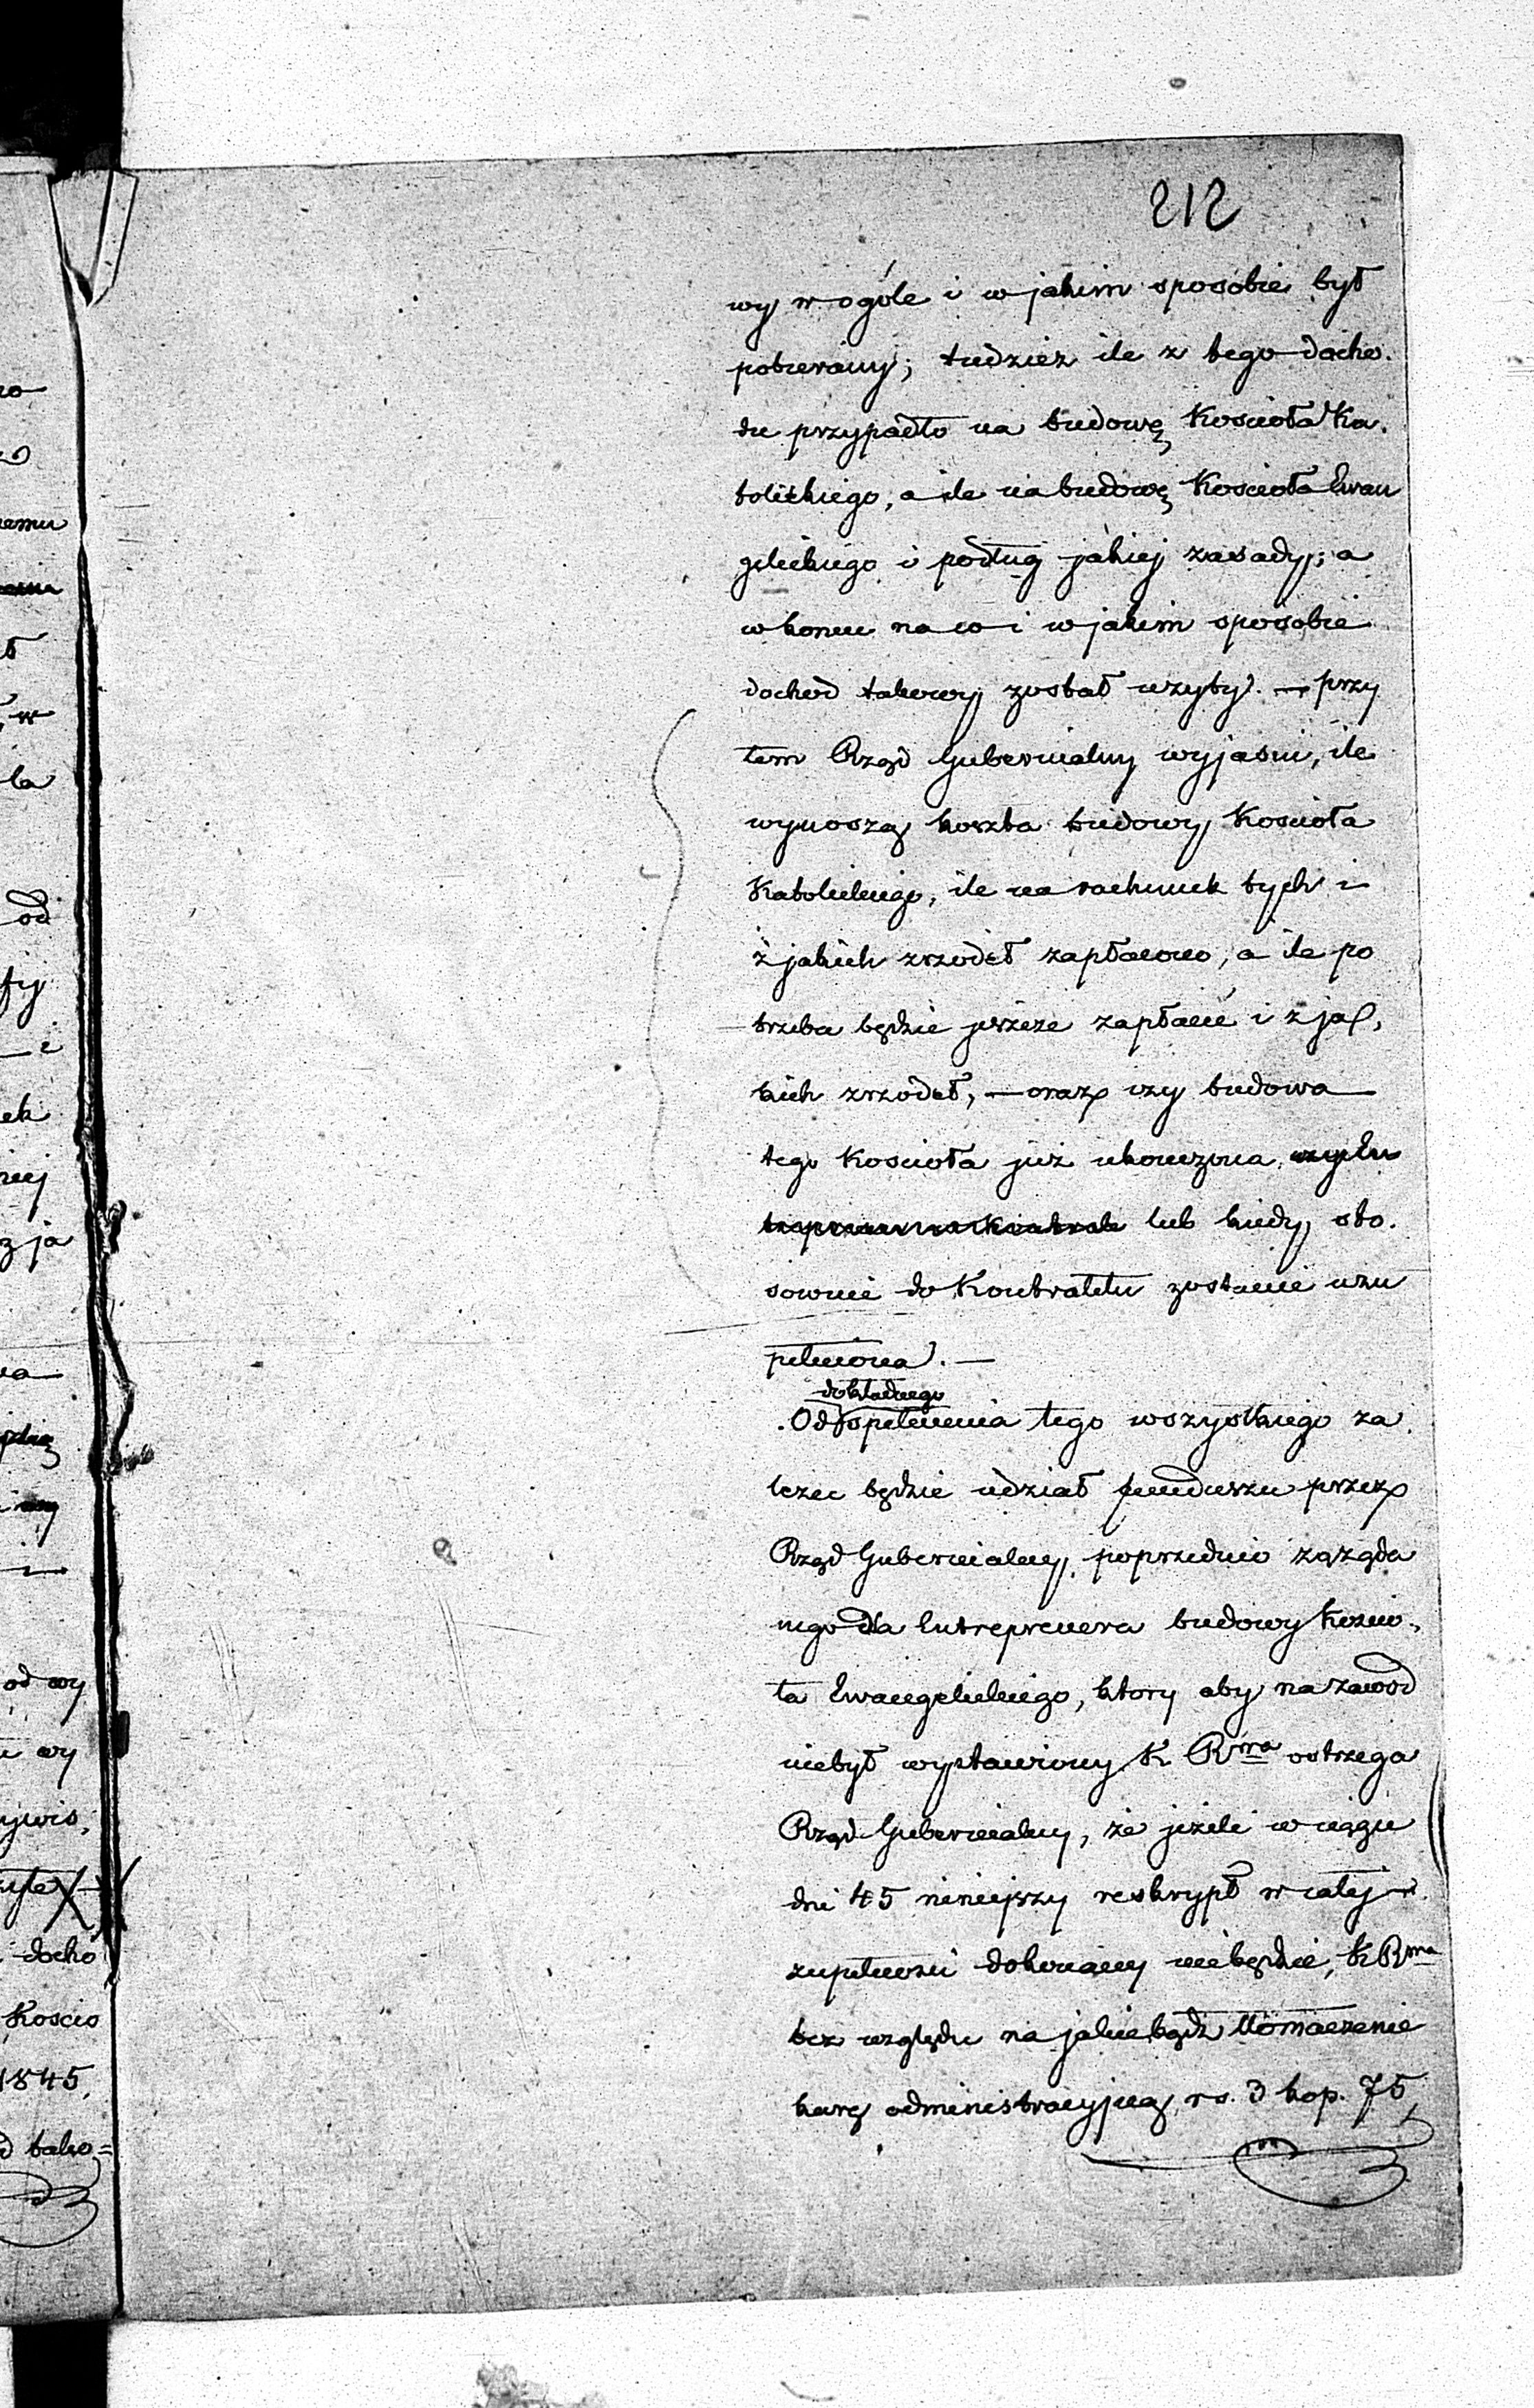 212
wy w ogóle i w jakim sposobie był
pobierany; tudzież ile z tego docho-
du przypadło na budowę Kościoła Ka-
tolickiego, a ile na budowę Kościoła Ewan
gelickiego i podług jakiej zasady; a
w koncu na co i w jakim sposobie
dochod takowy został użyty. — przy
tem Rząd Gubernialny wyjasni, ile
wynoszą koszta budowy Kościoła
Katolickiego, ile na rachunek tych i
z jakich zrzódeł zapłacono, a ile po
trzeba będzie jeszcze zapłacić i z ja-
kich zrzódeł, — oraz czy budowa
tego Kościoła już ukończona,
lub kiedy sto-
sownie do Kontraktu zostanie uzu
pełniona. —
dokładnego
Od spełnienia tego wszystkiego za
leżec będzie udział funduszu przez
Rząd Gubernialny poprzednio zażąda
nego dla Entreprenera budowy Koscio-
ła Ewangelickiego, ktory aby na zawod
niebył wystawiony K Rma ostrzega
Rząd Gubernialny, że jeżeli w ciągu
dni 45 niniejszy reskrypt w całej
zupełności dokonany niebędzie, K Rma
bez względu na jakiebądź tłómaczenie
karę administracyjną rs. 3 kop. 75
od
ek
zja
od wy
wy
docho
Koscio
1845,
tako=